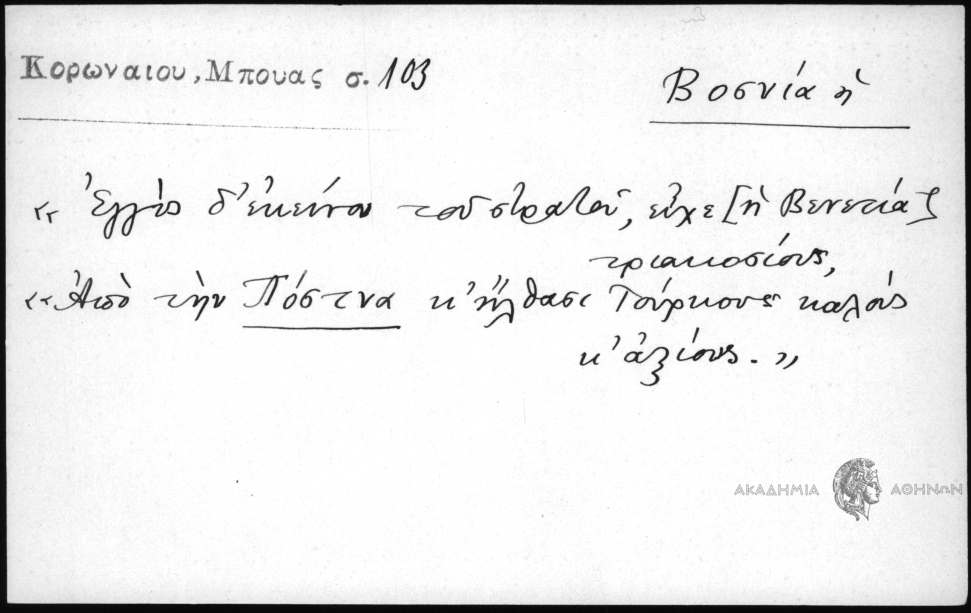 Κορωναιου, Μπουας σ. 103
Βοσνία ἡ
«Ἐγγὺς δ' ἐκείνου τοῦ στρατοῦ, εἶχε [ἡ Βενετία]
τριακοσίους,
«Ἀπὸ τὴν Πόστνα κ' ἤλθασι Τούρκους καλοὺς
κ' ἀξίους.»
ΑΚΑΔΗΜΙΑ ΑΘΗΝΩΝ